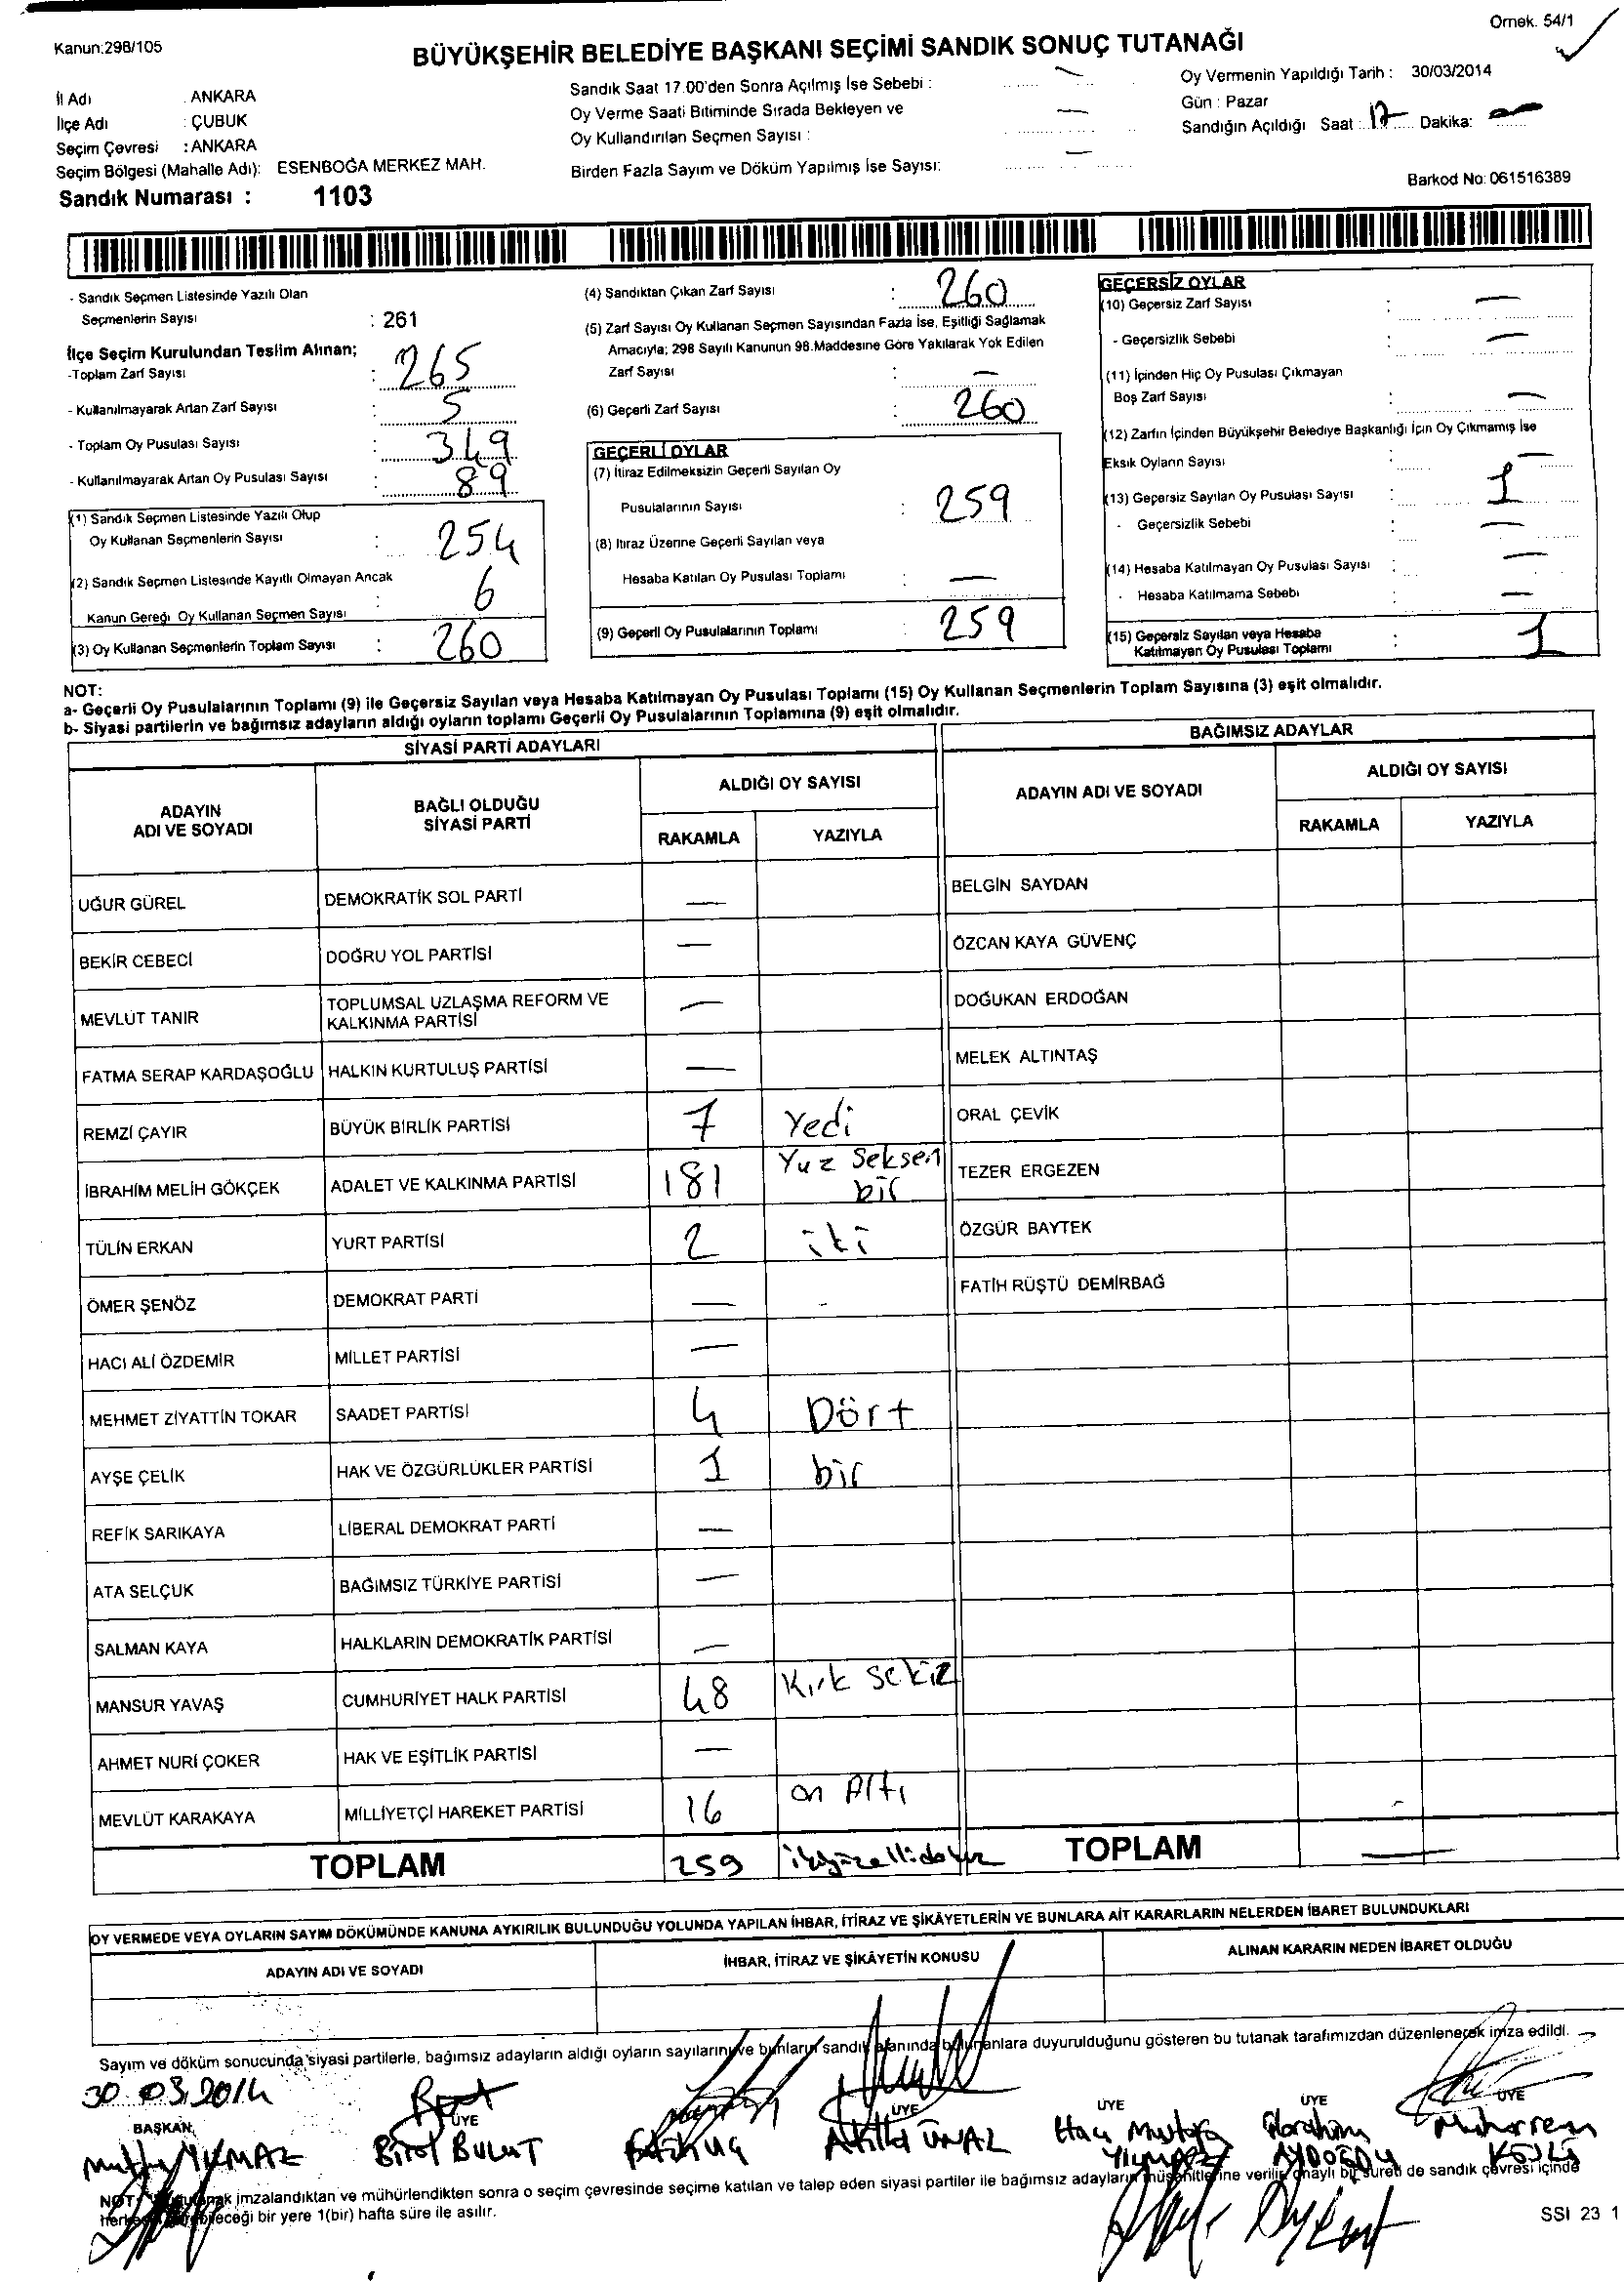 Örnek. 54/1
Kanun:298/105
BÜYÜKŞEHİR BELEDİYE BAŞKANI SEÇİMİ SANDIK SONUÇ TUTANAĞI
İl Adı : ANKARA
İlçe Adı : ÇUBUK
Seçim Çevresi : ANKARA
Seçim Bölgesi (Mahalle Adı): ESENBOĞA MERKEZ MAH.
Sandık Numarası : 1103
Sandık Saat 17.00'den Sonra Açılmış İse Sebebi : —
Oy Verme Saati Bitiminde Sırada Bekleyen ve
Oy Kullandırılan Seçmen Sayısı : —
Birden Fazla Sayım ve Döküm Yapılmış İse Sayısı: —
Oy Vermenin Yapıldığı Tarih : 30/03/2014
Gün : Pazar
Sandığın Açıldığı Saat : 17 Dakika: —
Barkod No: 061516389
- Sandık Seçmen Listesinde Yazılı Olan
Seçmenlerin Sayısı : 261
İlçe Seçim Kurulundan Teslim Alınan;
-Toplam Zarf Sayısı : 265
- Kullanılmayarak Artan Zarf Sayısı : 5
- Toplam Oy Pusulası Sayısı : 349
- Kullanılmayarak Artan Oy Pusulası Sayısı : 89
(1) Sandık Seçmen Listesinde Yazılı Olup
Oy Kullanan Seçmenlerin Sayısı : 254
(2) Sandık Seçmen Listesinde Kayıtlı Olmayan Ancak
Kanun Gereği Oy Kullanan Seçmen Sayısı : 6
(3) Oy Kullanan Seçmenlerin Toplam Sayısı : 260
(4) Sandıktan Çıkan Zarf Sayısı : 260
(5) Zarf Sayısı Oy Kullanan Seçmen Sayısından Fazla İse, Eşitliği Sağlamak
Amacıyla; 298 Sayılı Kanunun 98.Maddesine Göre Yakılarak Yok Edilen
Zarf Sayısı : —
(6) Geçerli Zarf Sayısı : 260
GEÇERLİ OYLAR
(7) İtiraz Edilmeksizin Geçerli Sayılan Oy
Pusulalarının Sayısı : 259
(8) İtiraz Üzerine Geçerli Sayılan veya
Hesaba Katılan Oy Pusulası Toplamı : —
(9) Geçerli Oy Pusulalarının Toplamı : 259
GEÇERSİZ OYLAR
(10) Geçersiz Zarf Sayısı : —
- Geçersizlik Sebebi : —
(11) İçinden Hiç Oy Pusulası Çıkmayan
Boş Zarf Sayısı : —
(12) Zarfın İçinden Büyükşehir Belediye Başkanlığı İçin Oy Çıkmamış İse
Eksik Oyların Sayısı : —
(13) Geçersiz Sayılan Oy Pusulası Sayısı : 1
- Geçersizlik Sebebi : —
(14) Hesaba Katılmayan Oy Pusulası Sayısı : —
- Hesaba Katılmama Sebebi : —
(15) Geçersiz Sayılan veya Hesaba
Katılmayan Oy Pusulası Toplamı : 1
NOT:
a- Geçerli Oy Pusulalarının Toplamı (9) ile Geçersiz Sayılan veya Hesaba Katılmayan Oy Pusulası Toplamı (15) Oy Kullanan Seçmenlerin Toplam Sayısına (3) eşit olmalıdır.
b- Siyasi partilerin ve bağımsız adayların aldığı oyların toplamı Geçerli Oy Pusulalarının Toplamına (9) eşit olmalıdır.
SİYASİ PARTİ ADAYLARI
ADAYIN ADI VE SOYADI BAĞLI OLDUĞU SİYASİ PARTİ ALDIĞI OY SAYISI
RAKAMLA YAZIYLA
UĞUR GÜREL DEMOKRATİK SOL PARTİ —
BEKİR CEBECİ DOĞRU YOL PARTİSİ —
MEVLÜT TANIR TOPLUMSAL UZLAŞMA REFORM VE KALKINMA PARTİSİ —
FATMA SERAP KARDAŞOĞLU HALKIN KURTULUŞ PARTİSİ —
REMZİ ÇAYIR BÜYÜK BİRLİK PARTİSİ 7 Yedi
İBRAHİM MELİH GÖKÇEK ADALET VE KALKINMA PARTİSİ 181 Yuz Seksen bir
TÜLİN ERKAN YURT PARTİSİ 2 iki
ÖMER ŞENÖZ DEMOKRAT PARTİ — -
HACI ALİ ÖZDEMİR MİLLET PARTİSİ —
MEHMET ZİYATTİN TOKAR SAADET PARTİSİ 4 Dört
AYŞE ÇELİK HAK VE ÖZGÜRLÜKLER PARTİSİ 1 bir
REFİK SARIKAYA LİBERAL DEMOKRAT PARTİ —
ATA SELÇUK BAĞIMSIZ TÜRKİYE PARTİSİ —
SALMAN KAYA HALKLARIN DEMOKRATİK PARTİSİ —
MANSUR YAVAŞ CUMHURİYET HALK PARTİSİ 48 Kırk Sekiz
AHMET NURİ ÇOKER HAK VE EŞİTLİK PARTİSİ —
MEVLÜT KARAKAYA MİLLİYETÇİ HAREKET PARTİSİ 16 on Altı
TOPLAM 259 ikiyüzellidokuz
BAĞIMSIZ ADAYLAR
ADAYIN ADI VE SOYADI ALDIĞI OY SAYISI
RAKAMLA YAZIYLA
BELGİN SAYDAN
ÖZCAN KAYA GÜVENÇ
DOĞUKAN ERDOĞAN
MELEK ALTINTAŞ
ORAL ÇEVİK
TEZER ERGEZEN
ÖZGÜR BAYTEK
FATİH RÜŞTÜ DEMİRBAĞ
TOPLAM —
OY VERMEDE VEYA OYLARIN SAYIM DÖKÜMÜNDE KANUNA AYKIRILIK BULUNDUĞU YOLUNDA YAPILAN İHBAR, İTİRAZ VE ŞİKÂYETLERİN VE BUNLARA AİT KARARLARIN NELERDEN İBARET BULUNDUKLARI
ADAYIN ADI VE SOYADI İHBAR, İTİRAZ VE ŞİKÂYETİN KONUSU ALINAN KARARIN NEDEN İBARET OLDUĞU
Sayım ve döküm sonucunda siyasi partilerle, bağımsız adayların aldığı oyların sayılarını ve bunların sandık alanında bulunanlara duyurulduğunu gösteren bu tutanak tarafımızdan düzenlenerek imza edildi.
30.03.2014
BAŞKAN ÜYE ÜYE ÜYE ÜYE ÜYE
YILMAZ Birol BULUT Atilla ÜNAL Hacı Mustafa Yılmaz İbrahim AYDOĞDU Muharrem
NOT: imzalandıktan ve mühürlendikten sonra o seçim çevresinde seçime katılan ve talep eden siyasi partiler ile bağımsız adayların müşahitlerine verilir, onaylı bir sureti de sandık çevresi içinde
bir yere 1(bir) hafta süre ile asılır.
SSI 23 1